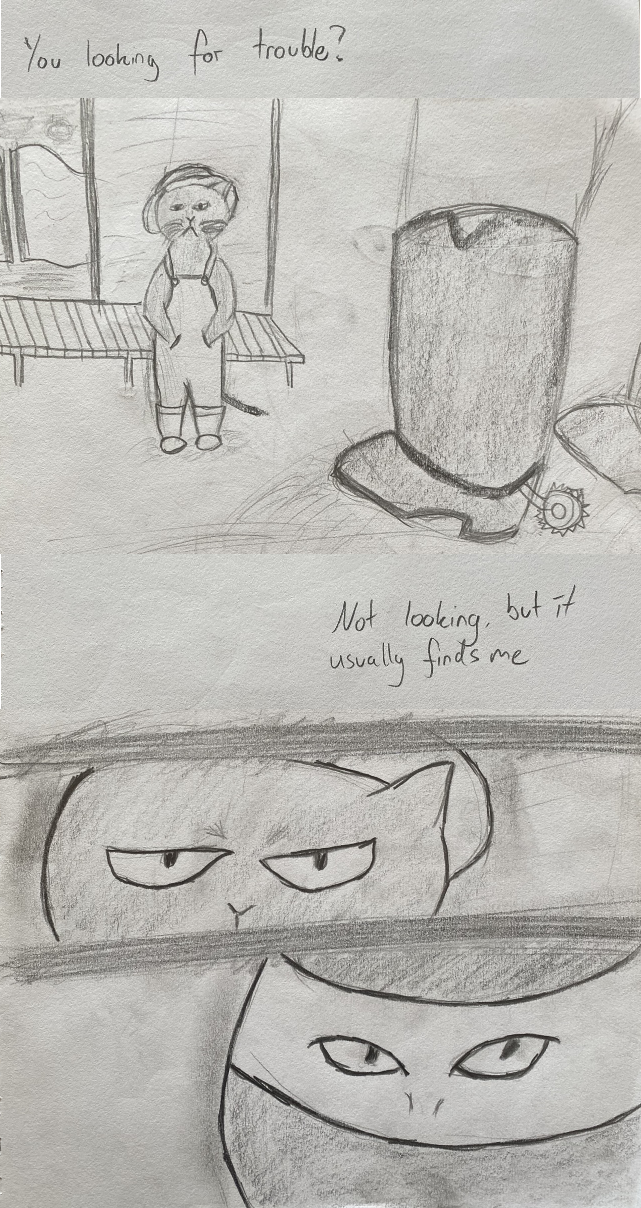 You looking for trouble?
Not looking, but it
usually finds me